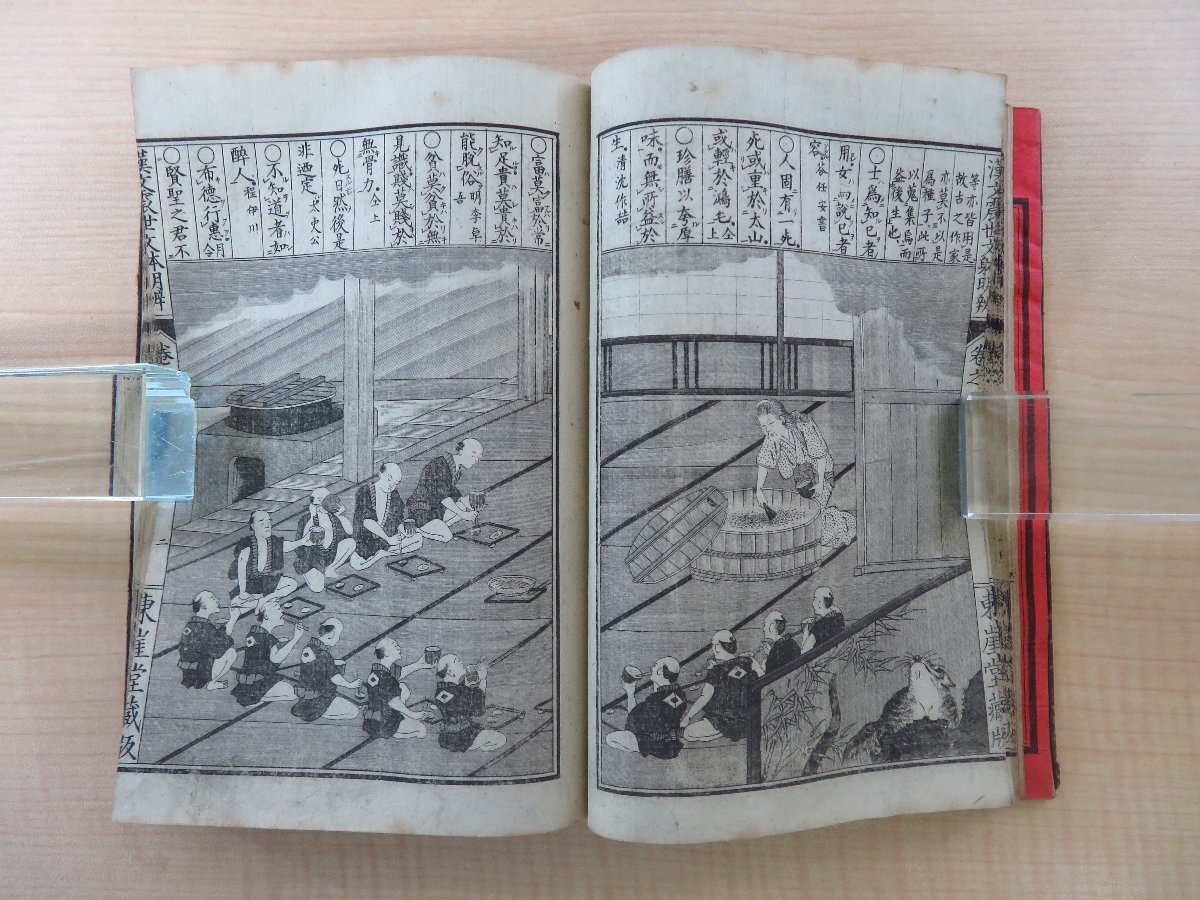 等亦皆用是
故古之作家
亦莫不以是
爲種子此所
以蒐集爲而
益後生也
○士爲知己者
用女爲説己者
容 答任安書
○人固有一死
死或重於太山
或輕於鴻毛 仝上
○珍膳以奉厚
味而無所益於
生 清沈作喆
○富莫富於常
知足貴莫貴於
能脱俗 明李卓吾
○貧莫貧於無
見識賤莫賤於
無骨力 仝上
○死日然後是
非迺定 太史公
○不知道者如
醉人 程伊川
○布德行惠 月令
○賢聖之君不
東崖堂藏版
東崖堂藏版